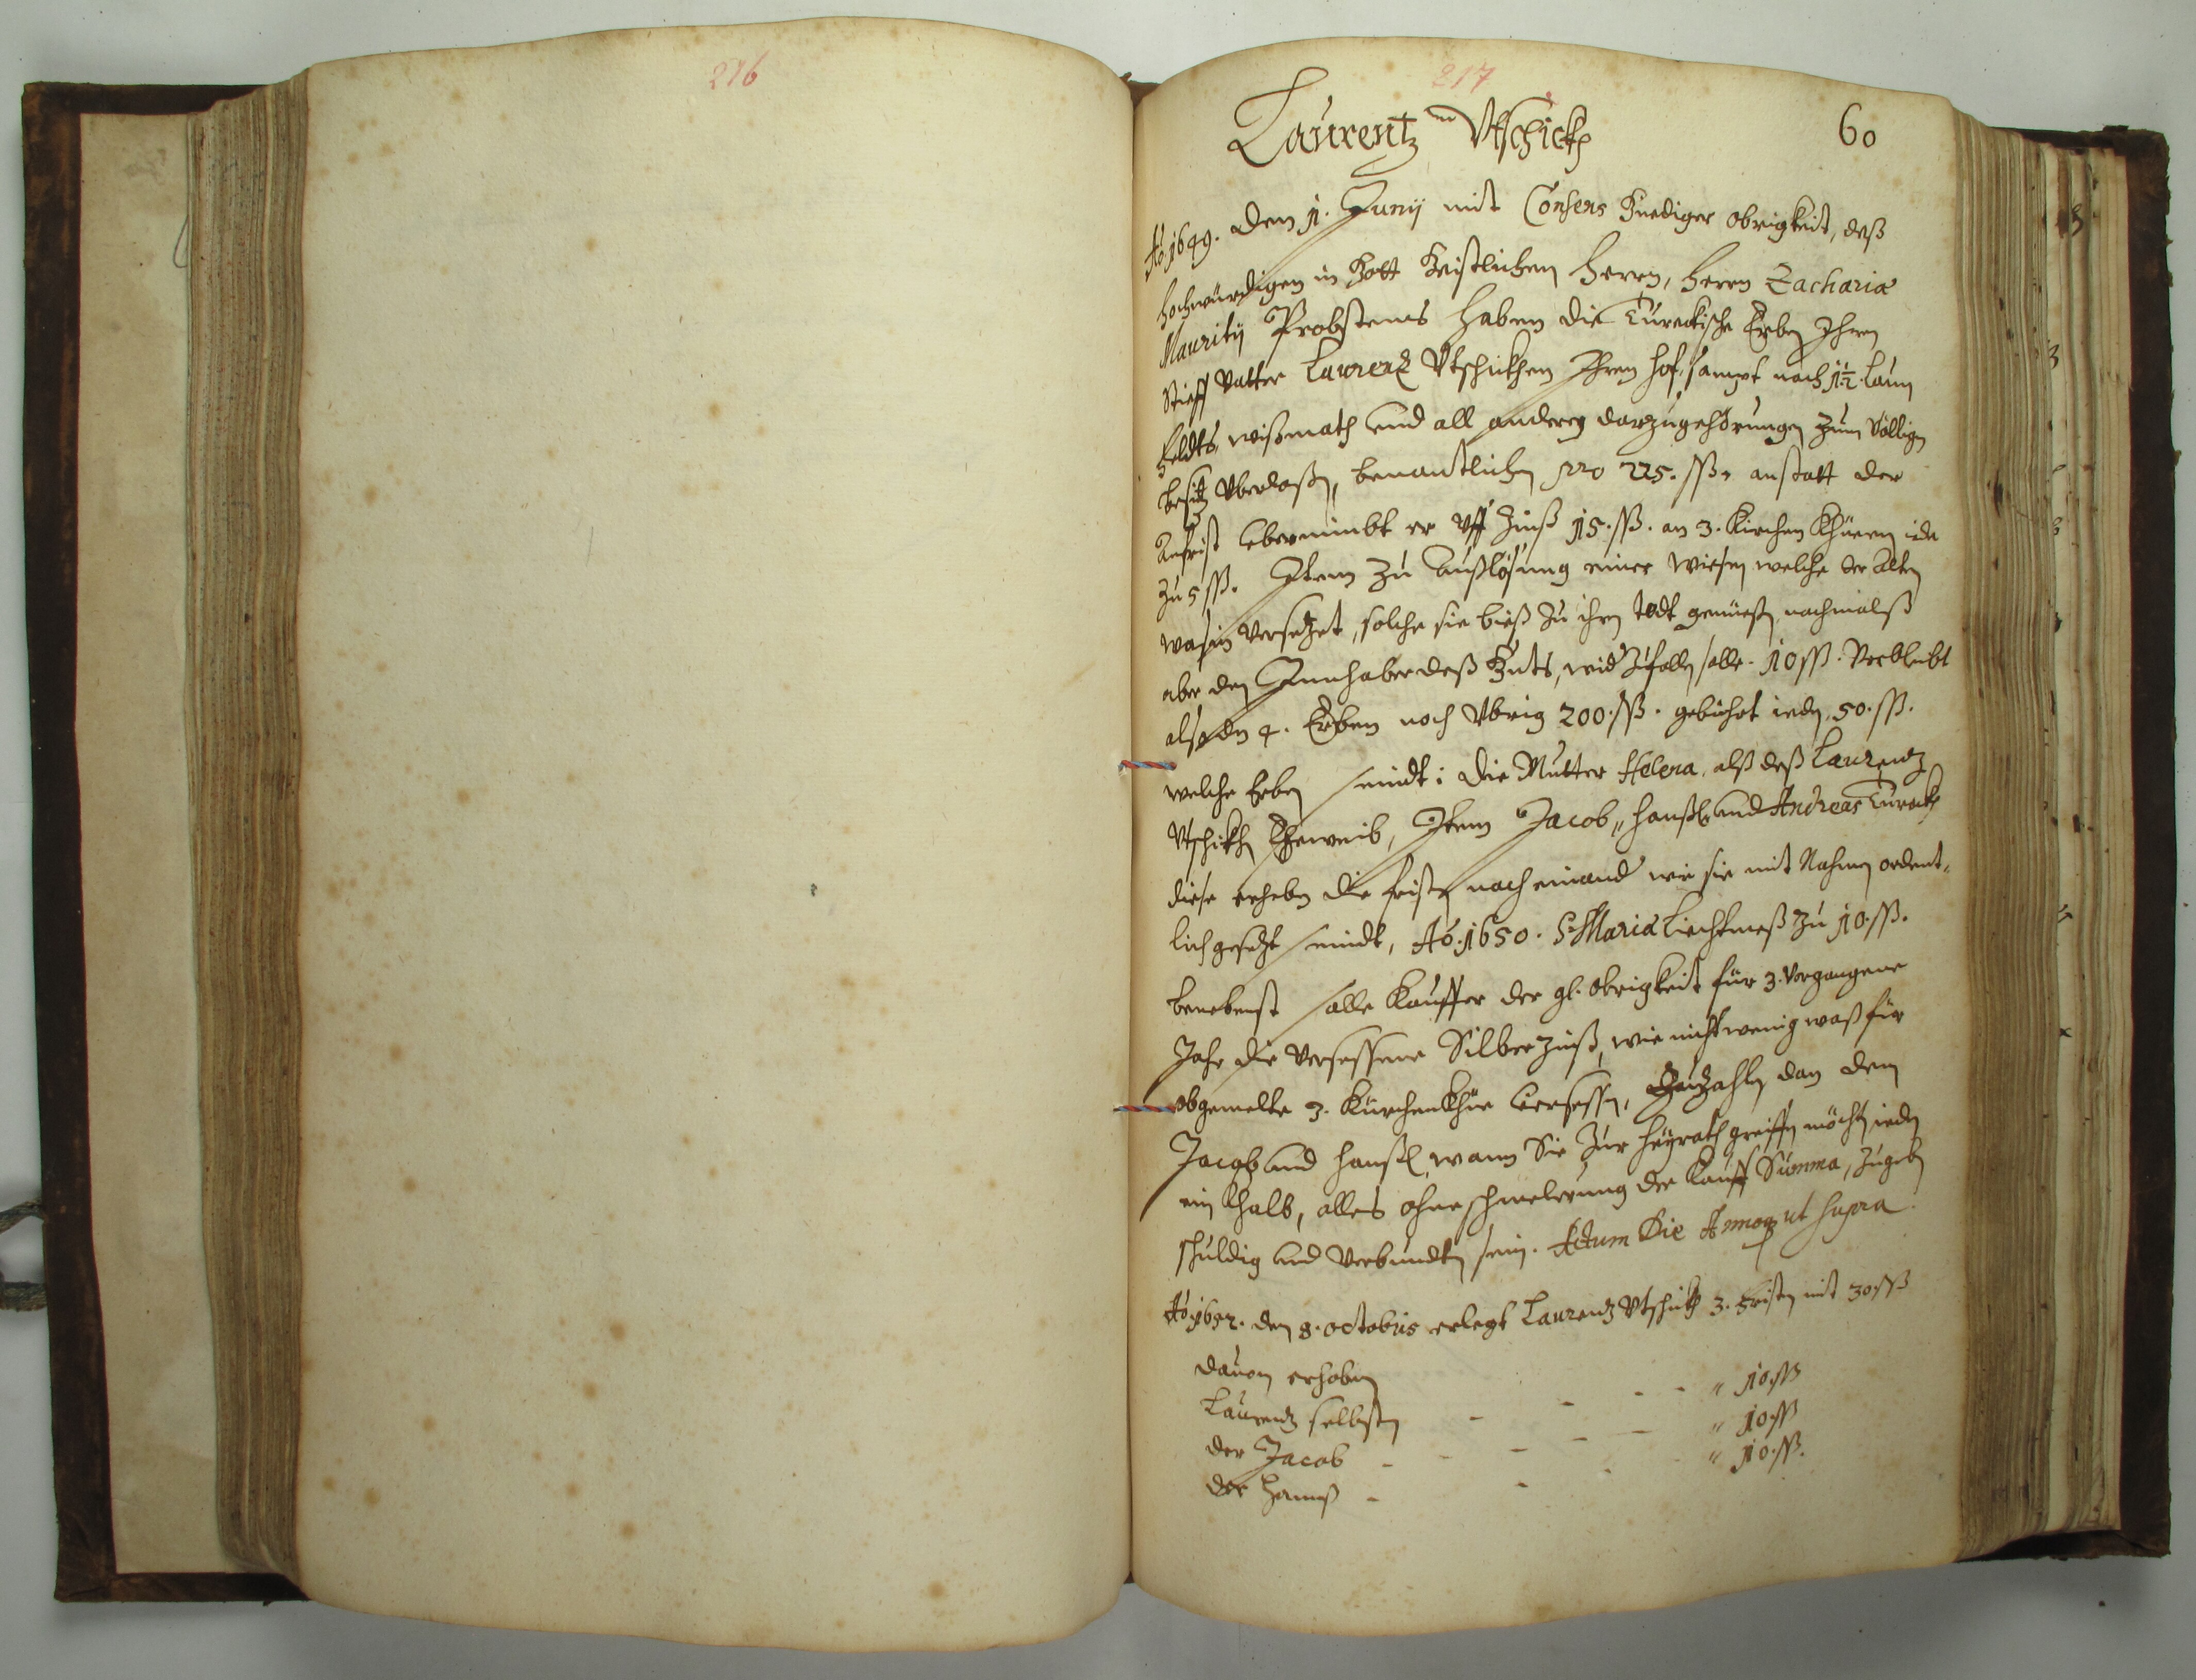 216
217
Laurentz Vtschickh
60
Ao. 1649. den 11. Junij mit Consens Gnediger obrigkeit, deß
hochwürdigen in Gott Geistlichen Herrn, Herrn Zachariæ
Mauritij Probstens haben die Tureckische Erben Ihren
Stieff Vatter Laurentz Vtschickhen Ihren hof, sampt noch 1½ Laan
Feldts, wißmath und all anderen darzugehörungen zum Völligen
besitz Vberlaßen, benantlichen pro 225. ß. anstatt der
Anfrist übernimbt er Vff Zinß 15. ß. an 3. Kirchen Khüeen iede
zu 5 ß. Item zu Außlösung einer Wiesen welche der Alten
versetzet, solche sie bieß zu ihren todt genüeßen, nachmalß
aber den Innhaber deß Guts, wid Zufallen solle. 10 ß. Verbleibt
also den 4. Erben noch Vbrig 200. ß. gebührt ieden 50. ß.
welche Erben seindt: die Mutter Helena, alß deß Laurentz
Vtschikh Eheweib, Item Jacob, hanßl und Andreas Tureckh
diese erheben die fristen nach einand wie sie mit Nahmen ordent-
lich gesetzt seindt, Ao. 1650. S. Mariæ Liechtmeß zu 10. ß.
benebenst solle Kauffer der gl. obrigkeit für 3. Vergangene
Jahr die Versessene Silberzinß, wie nicht wenig waß für
obgemelte 3. Kürchenkhüe versessen, Zu zahlen dan dem
Jacob und hanßl, wann Sie zur heyrath greiffen möchten ieden
ein Khalb, alles ohne schmelerung der Kauff Summa, zugeben
schuldig und Verbundten sein. Actum Die Annoq ut supra.
Ao. 1652. den 8. octobris erlegt Laurentz Vtschickh 3. Fristen mit 30 ß
dauon erhoben
Laurentz selbsten - - - - " 10. ß
der Jacob - - - - - " 10. ß
der Hannß - - - - " 10. ß.